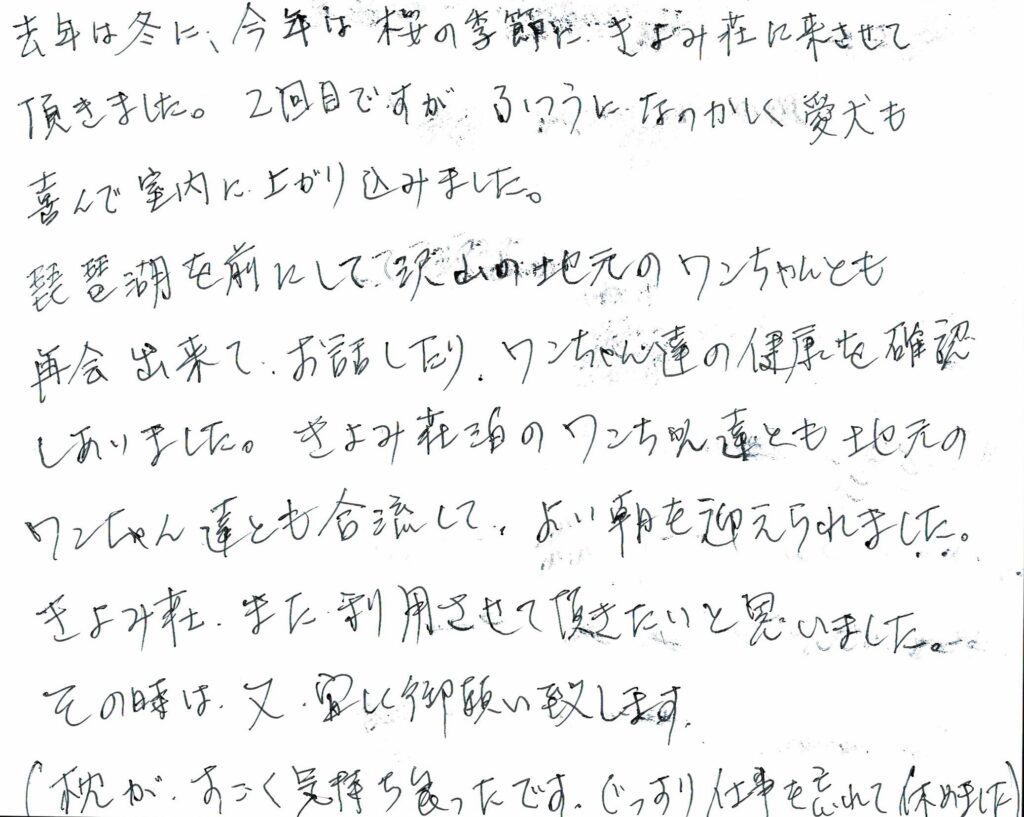 去年は冬に、今年は桜の季節に きよみ荘に来させて
頂きました。2回目ですが ふつうに なつかしく愛犬も
喜んで室内に上がり込みました。
琵琶湖を前にして沢山の地元のワンちゃんとも
再会出来て、お話したり、ワンちゃん達の健康を確認
しあいました。きよみ荘泊のワンちゃん達とも地元の
ワンちゃん達とも合流して、よい朝を迎えられました。
きよみ荘、また利用させて頂きたいと思いました。
その時は、又、宜しく御願い致します。
(枕が、すごく気持ち良ったです。ぐっすり仕事を忘れて休めました)